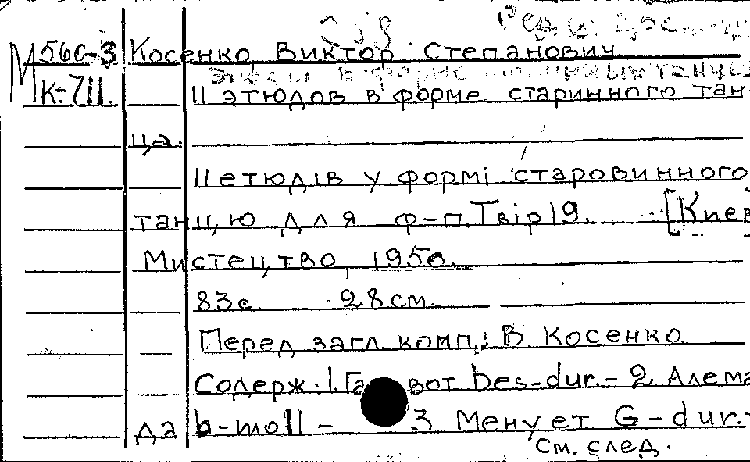 М56с-3 Косенко, Виктор Степанович
К-711 11 этюдов в форме старинного тан-
ца.
11 етюдів у формі старовинного
танцю для ф-п. Твір 19. [Киев
Мистецтво, 1950.
83с. 28см.
Перед загл. комп.: В. Косенко
Содерж.: 1. Гавот Des-dur. - 2 Алеман
да b-moll - 3 Менует G-dur.-
См. след.